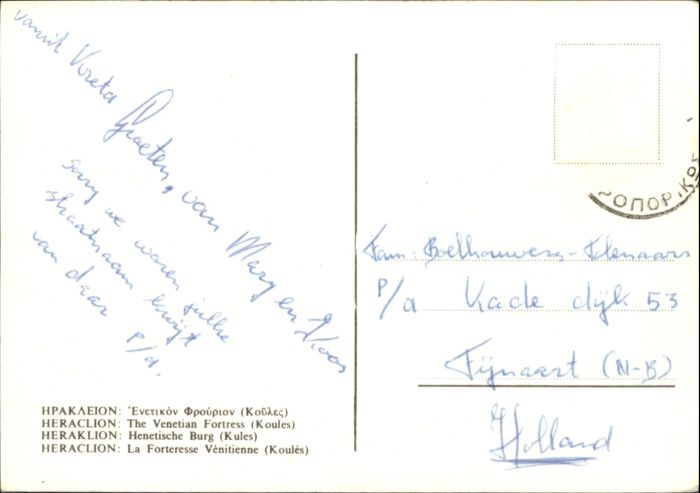 vanuit Kreta
Groeten, van Mary en
sorry we waren jullie
straatnaam kwijt
van daar p/a.
ΗΡΑΚΛΕΙΟΝ: Ἑνετικὸν Φρούριον (Κοῦλες)
HERACLION: The Venetian Fortress (Koules)
HERAKLION: Henetische Burg (Kules)
HERACLION: La Forteresse Vénitienne (Koulès)
ΡΟΠΟΡ. ΚΟΣ
Fam: Boelhouwers -
P/a Kade dijk 53
Fijnaart (N-B)
Holland